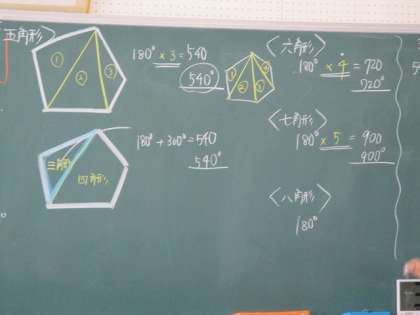 五角形〉
① ② ③
180° × 3 = 540
540°
① ② ③ ④
三角形
四角形
180° + 360° = 540
540°
〈六角形〉
180° × 4 = 720
720°
〈七角形〉
180° × 5 = 900
900°
〈八角形〉
180°